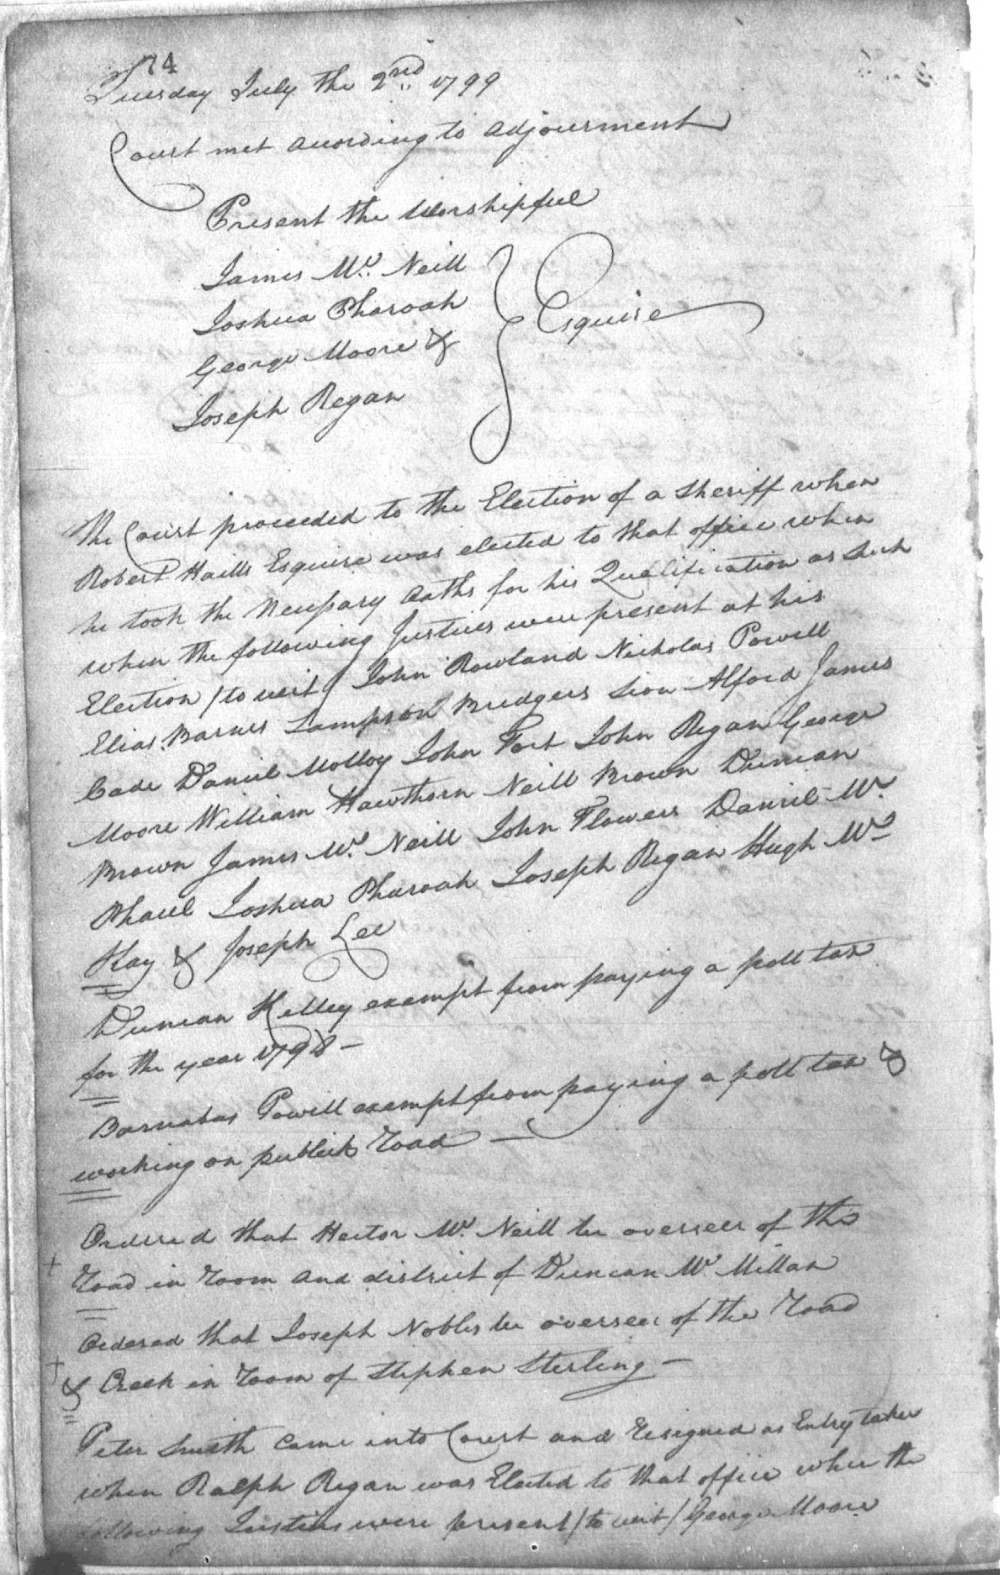 74
Tuesday July the 2nd 1799
Court met according to adjourment
Present the Worshipful
James Mc. Neill
Joshua Pharoah
George Moore &
Joseph Regan
Esquire
The Court proceeded to the Election of a Sheriff when
Robert Haills Esquire was elected to that office when
he took the Necessary Oaths for his Qualification as such
when the following Justices were present at his
Election /to wit/ John Rowland Nicholas Powell
Elias Barnes Lampson Bridgers Sion Alford James
Cade Daniel Molloy John Fort John Regan George
Moore William Hawthorn Neill Brown Duncan
Brown James Mc. Neill John Flowers Daniel Mc.
Phaul Joshua Pharoah Joseph Regan Hugh Mc
Kay & Joseph Lee
Duncan Kelley exempt from paying a poll tax
for the year 1798 -
Barnabas Powell exempt from paying a poll tax &
working on publick Road -
Ordered that Hector Mc. Neill be overseer of the
Road in room and district of Duncan Mc Millan
Ordered that Joseph Nobles be overseer of the Road
& Creek in room of Stephen Sterling -
Peter Smith came into Court and resigned as Entry taker
when Ralph Regan was Elected to that office when the
following Justices were present /to wit/ George Moore